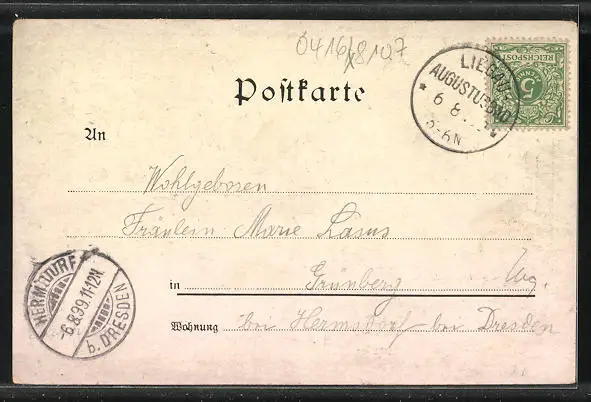 0416/8107
Postkarte
An
LIEGAU-
AUGUSTUSBAD
6 8
5-6N
REICHSPOST
5
PFENNIG
Wohlgeboren
Fräulein Marie Läsus
in Grünberg
Wohnung bei Hermsdorf bei Dresden
HERMSDORF
-6.8.99.11-12N.
b. DRESDEN